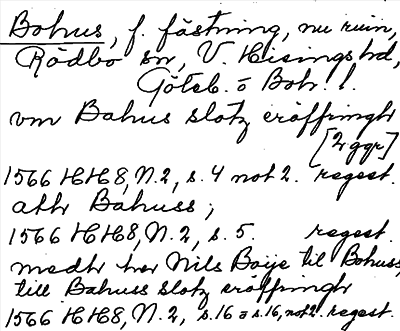 Bohus, f. fästning, nu ruin,
Rödbo sn, V. Hisings hd,
Göteb. o Boh. l.
vm Bahus slotz eröffringh
[2 ggr]
1566 HH 8, N. 2, s. 4 not 2. regest.
athr Bahuss;
1566 HH 8, N. 2, s. 5. regest.
medhr her Nils Böije til Bohuss,
till Bahuss slotz eröffringh
1566 HH 8, N. 2, s. 16 o s. 16, not 2. regest.